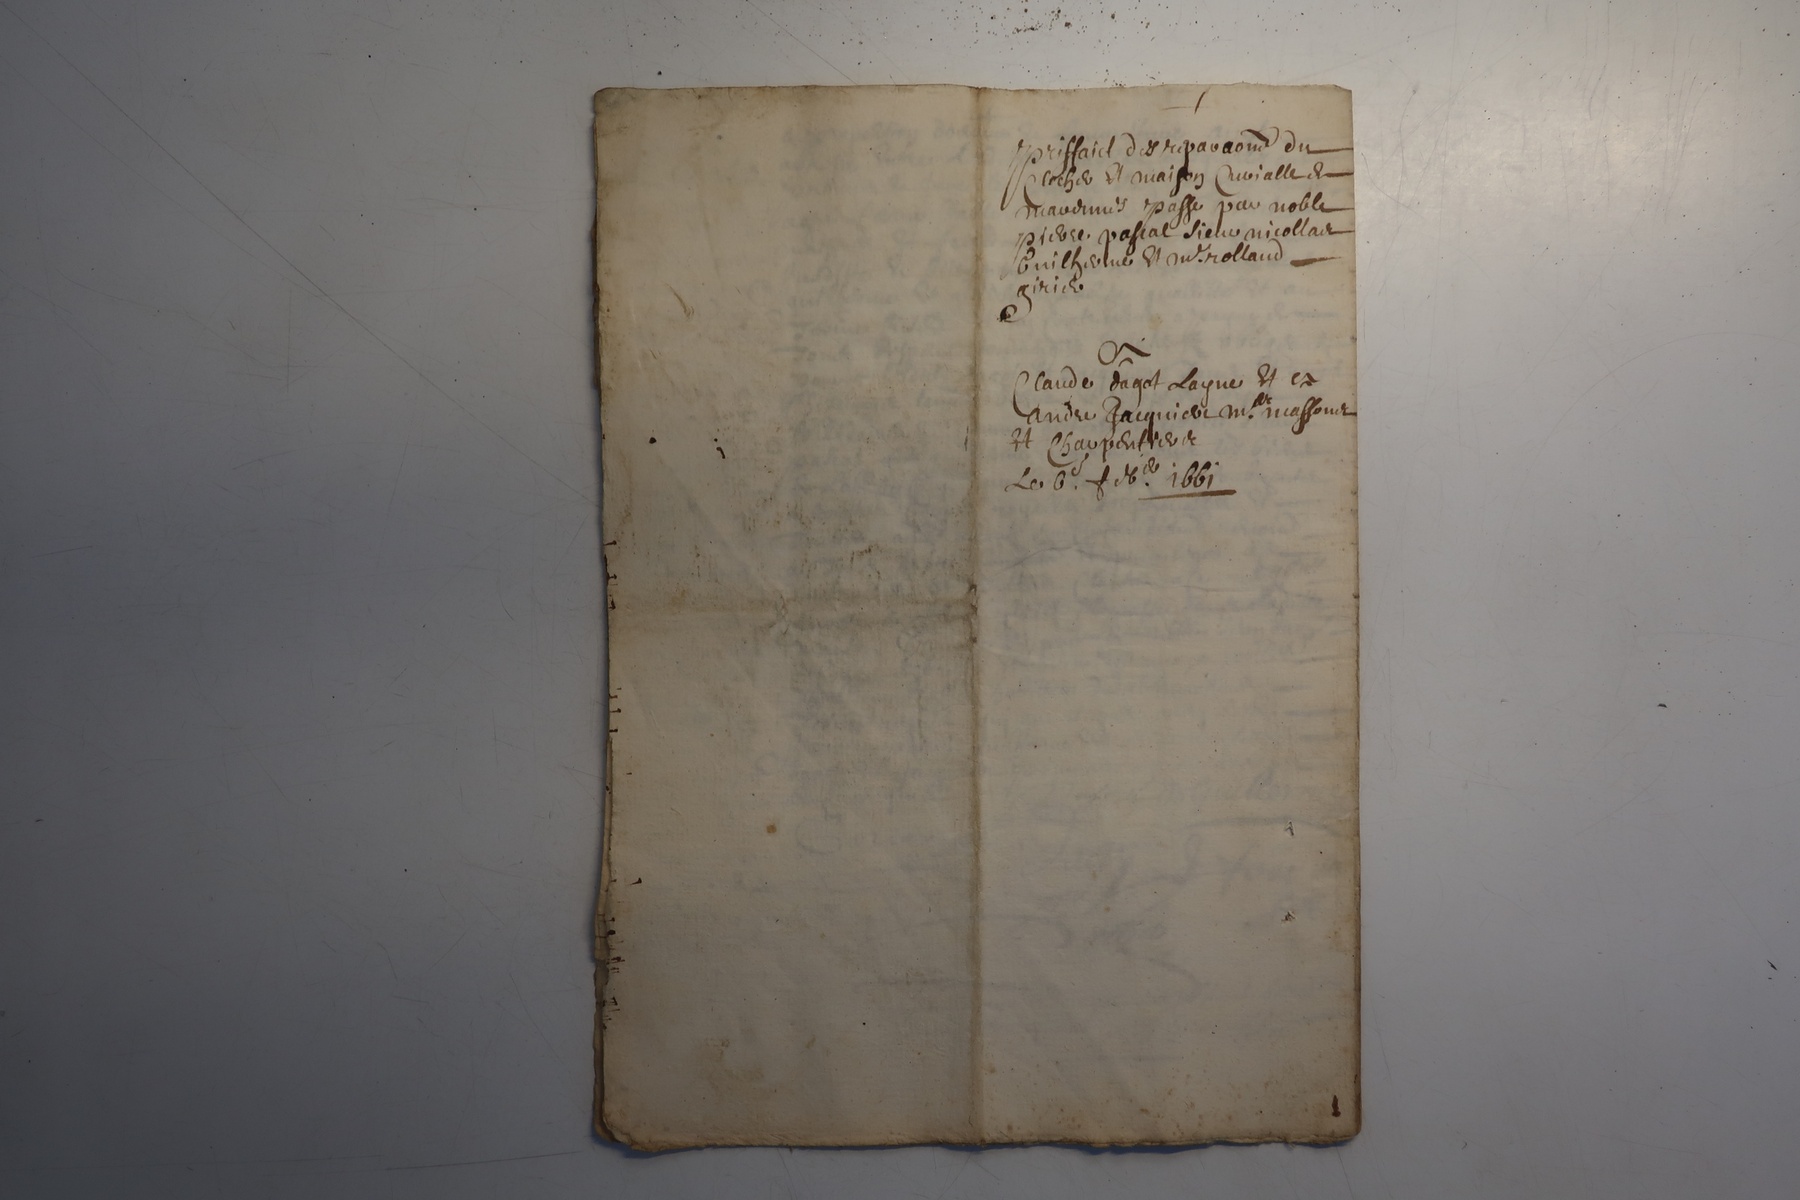 Priffaict des reparaons du
Clocher et maison Curialle de
passe par noble
pierre pascal sieur nicollas
Guilherme et mr. rolland
girier
A
Claude dagot Layne et
Andre Jacquier mres massons
et Charpentiers
Le 6e. feb. 1661